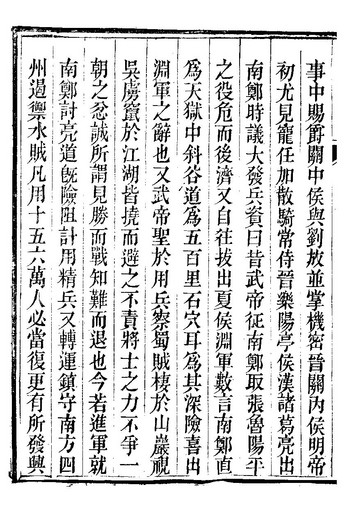 事中賜爵關中侯與劉放並掌機密晉關內侯明帝
初尤見寵任加散騎常侍晉樂陽亭侯漢諸葛亮出
南鄭時議大發兵資曰昔武帝征南鄭取張魯陽平
之役危而後濟又自往拔出夏侯淵軍數言南鄭直
為天獄中斜谷道為五百里石穴耳為其深險喜出
淵軍之辭也又武帝聖於用兵察蜀賊棲於山巖視
吳虜竄於江湖皆撓而避之不責將士之力不爭一
朝之忿誠所謂見勝而戰知難而退也今若進軍就
南鄭討亮道旣險阻計用精兵又轉運鎮守南方四
州遏禦水賊凡用十五六萬人必當復更有所發興